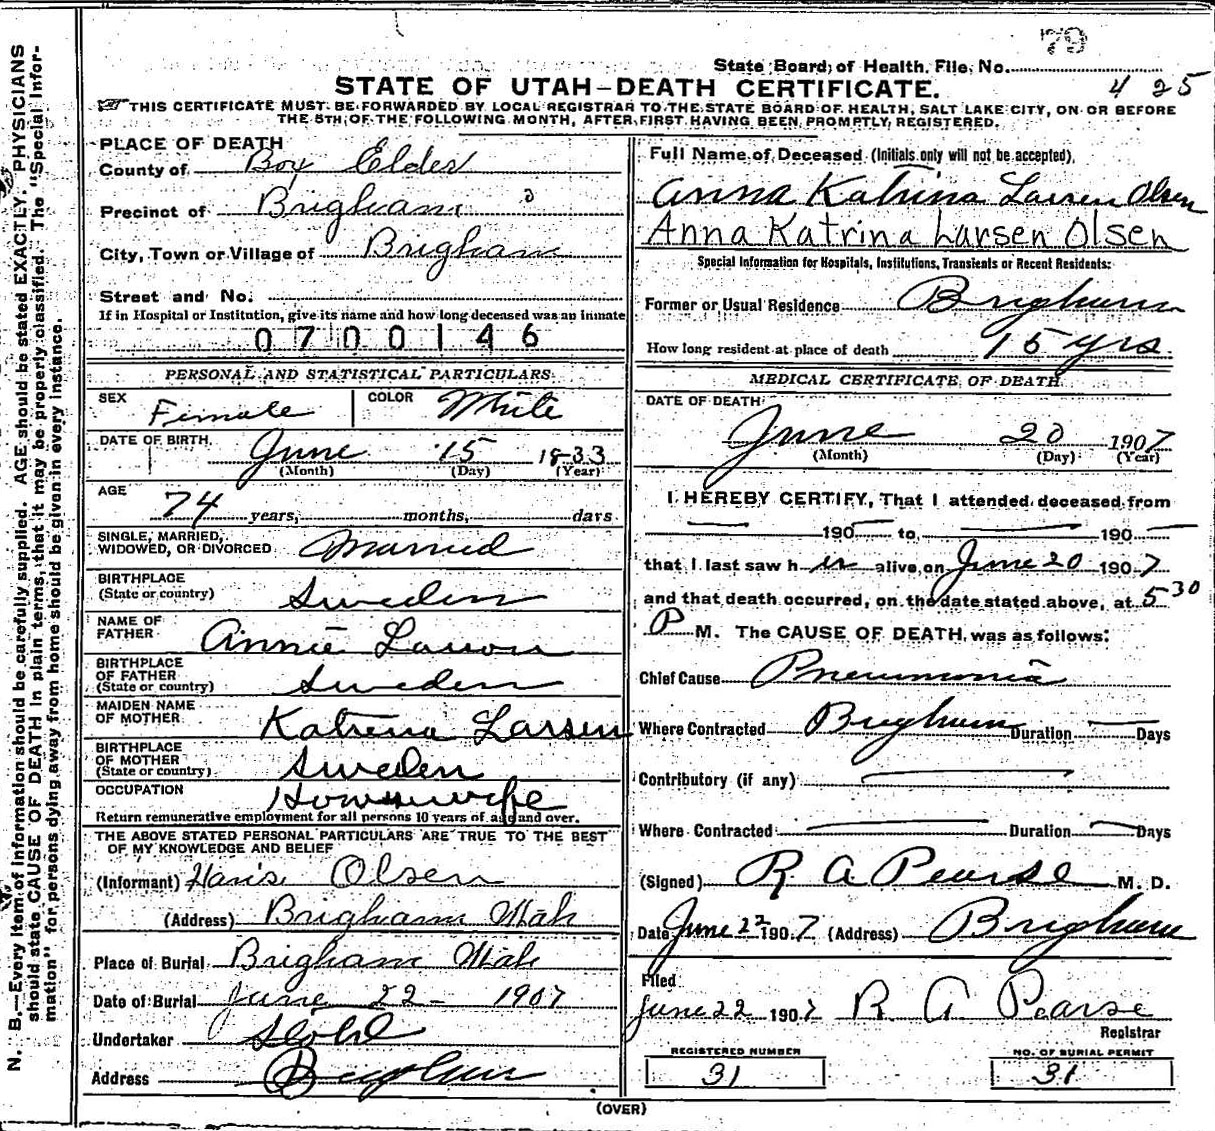 79
State Board of Health File No.
STATE OF UTAH—DEATH CERTIFICATE.
4 25
THIS CERTIFICATE MUST BE FORWARDED BY LOCAL REGISTRAR TO THE STATE BOARD OF HEALTH, SALT LAKE CITY, ON OR BEFORE
THE 5TH OF THE FOLLOWING MONTH, AFTER FIRST HAVING BEEN PROMPTLY REGISTERED.
PLACE OF DEATH
County of Box Elder
Precinct of Brigham
City, Town or Village of Brigham
Street and No.
If in Hospital or Institution, give its name and how long deceased was an inmate
0700146
PERSONAL AND STATISTICAL PARTICULARS
SEX Female COLOR White
DATE OF BIRTH June 15 1833
(Month) (Day) (Year)
AGE
74 years, months, days
SINGLE, MARRIED,
WIDOWED, OR DIVORCED Married
BIRTHPLACE
(State or country) Sweden
NAME OF
FATHER Annie Larson
BIRTHPLACE
OF FATHER
(State or country) Sweden
MAIDEN NAME
OF MOTHER Katrena Larsen
BIRTHPLACE
OF MOTHER
(State or country) Sweden
OCCUPATION Housewife
Return remunerative employment for all persons 10 years of age and over.
THE ABOVE STATED PERSONAL PARTICULARS ARE TRUE TO THE BEST
OF MY KNOWLEDGE AND BELIEF
(Informant) Hans Olsen
(Address) Brigham Utah
Place of Burial Brigham Utah
Date of Burial June 22 - 1907
Undertaker Stohl
Address Brigham
Full Name of Deceased (Initials only will not be accepted).
Anna Katrina Larsen Olsen
Anna Katrina Larsen Olsen
Special Information for Hospitals, Institutions, Transients or Recent Residents:
Former or Usual Residence Brigham
How long resident at place of death 15 yrs
MEDICAL CERTIFICATE OF DEATH
DATE OF DEATH
June 20 1907
(Month) (Day) (Year)
I HEREBY CERTIFY, That I attended deceased from
190 to 190
that I last saw her alive on June 20 1907
and that death occurred, on the date stated above, at 5 30
P M. The CAUSE OF DEATH was as follows:
Chief Cause Pneumonia
Where Contracted Brigham Duration Days
Contributory (if any)
Where Contracted Duration Days
(Signed) R A Pearse M. D.
Date June 22 1907 (Address) Brigham
Filed
June 22 1907 R A Pearse
Registrar
REGISTERED NUMBER
31
NO. OF BURIAL PERMIT
31
(OVER)
N. B.—Every item of information should be carefully supplied. AGE should be stated EXACTLY. PHYSICIANS
should state CAUSE OF DEATH in plain terms, that it may be properly classified. The "Special Infor-
mation" for persons dying away from home should be given in every instance.